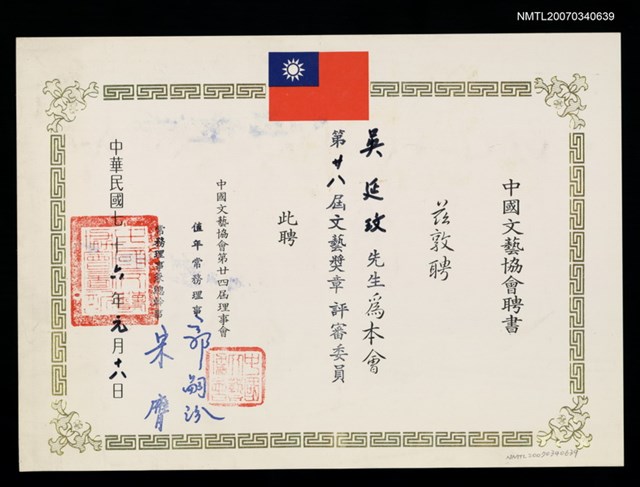 NMTL20070340639
中國文藝協會聘書
茲敦聘
吳延玫先生為本會
第廿八屆文藝獎章評審委員
此聘
中國文藝協會第廿四屆理事會
值年常務理事 郭嗣汾
常務理事兼總幹事 宋膺
中華民國七十六年元月十八日
NMTL20070340639